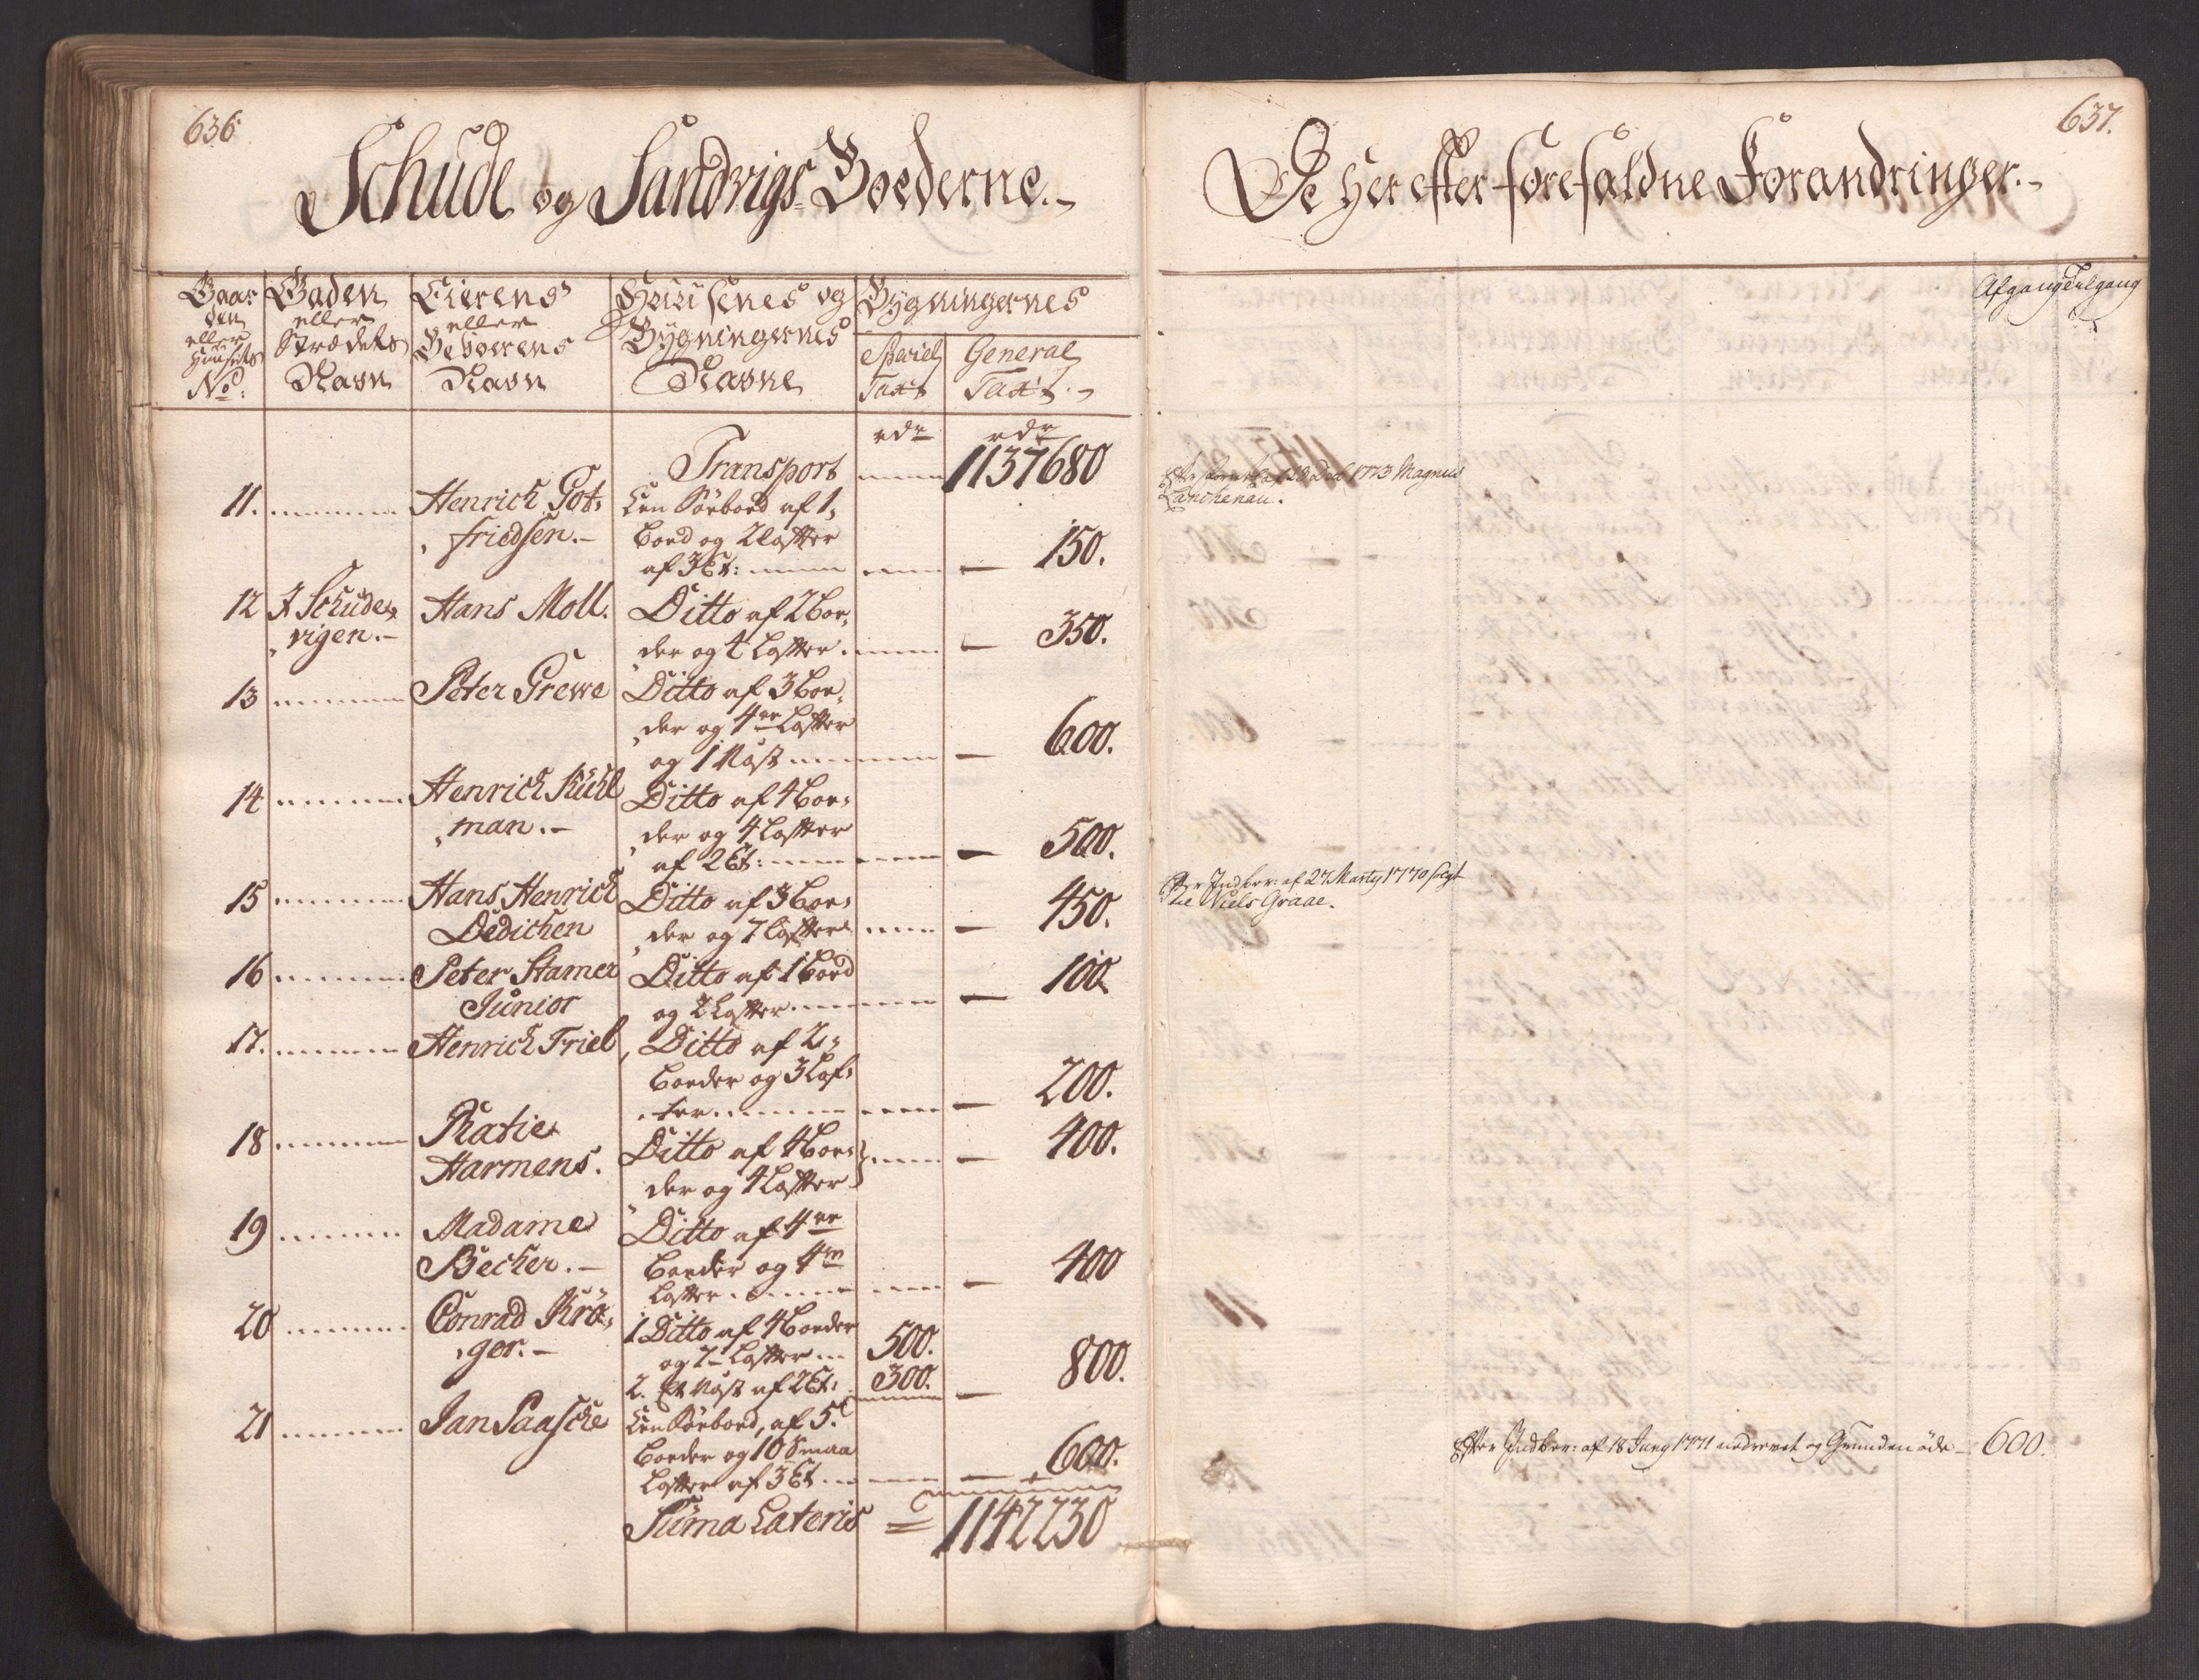 636
Schude og Sandvigs Boederne.
Gaar
den
eller
Huusets
No:
Gaden
eller
Strædets
Navn
Eierens
eller
Beboerens
Navn
Huusenes og
Bygningernes
Navne
Bygningernes
Speciel
Taxt
General
Taxt.
rdr
rdr
Transport 1137680
11. Henrich Got,
friedsen. Een Söeboed af 1,
boed og 2 loffter
af 3 Et: 150.
12 I Schude,
vigen. Hans Moll. Ditto af 2 boe,
der og 4 Loffter. 350.
13 Peter Grewe Ditto af 3 boe,
der og 4re Loffter
og 1 Nöst 600.
14 Henrich Kühl
man. Ditto af 4 boe,
der og 4 Loffter
af 2 Et: 500.
15 Hans Henrich
Dedichen Ditto af 3 boe,
der og 7 Loffter 450.
16 Peter Stamer
Junior Ditto af 1 boed
og 2 Loffter 100.
17. Henrich Friel Ditto af 2,
boeder og 3 Lof,
ter 200.
18 Katie
Harmens. Ditto af 4 boe,
der og 4 Loffter 400.
19 Madame
Becker. Ditto af 4re
boeder og 4re
Loffter 400
20 Conrad Krö,
ger. 1 Ditto af 4 boeder
og 7 Loffter 500.
2. Et Nöst af 2 Et: 300. 800.
21 Jan Paasche Een Söeboed, af 5.
boeder og 10 Smaa
Loffter af 3 Et 600.
Suma Lateris 1142230
637.
De her efter forefaldne Forandringer.
Afgang Tilgang
1773 Magnus
Lanchenau.
Efter Indber: af 27 Marty 1770 solgt
til Niels Graae.
Efter Indber: af 18 Juny 1771 nedrevet og Grunden öde 600.